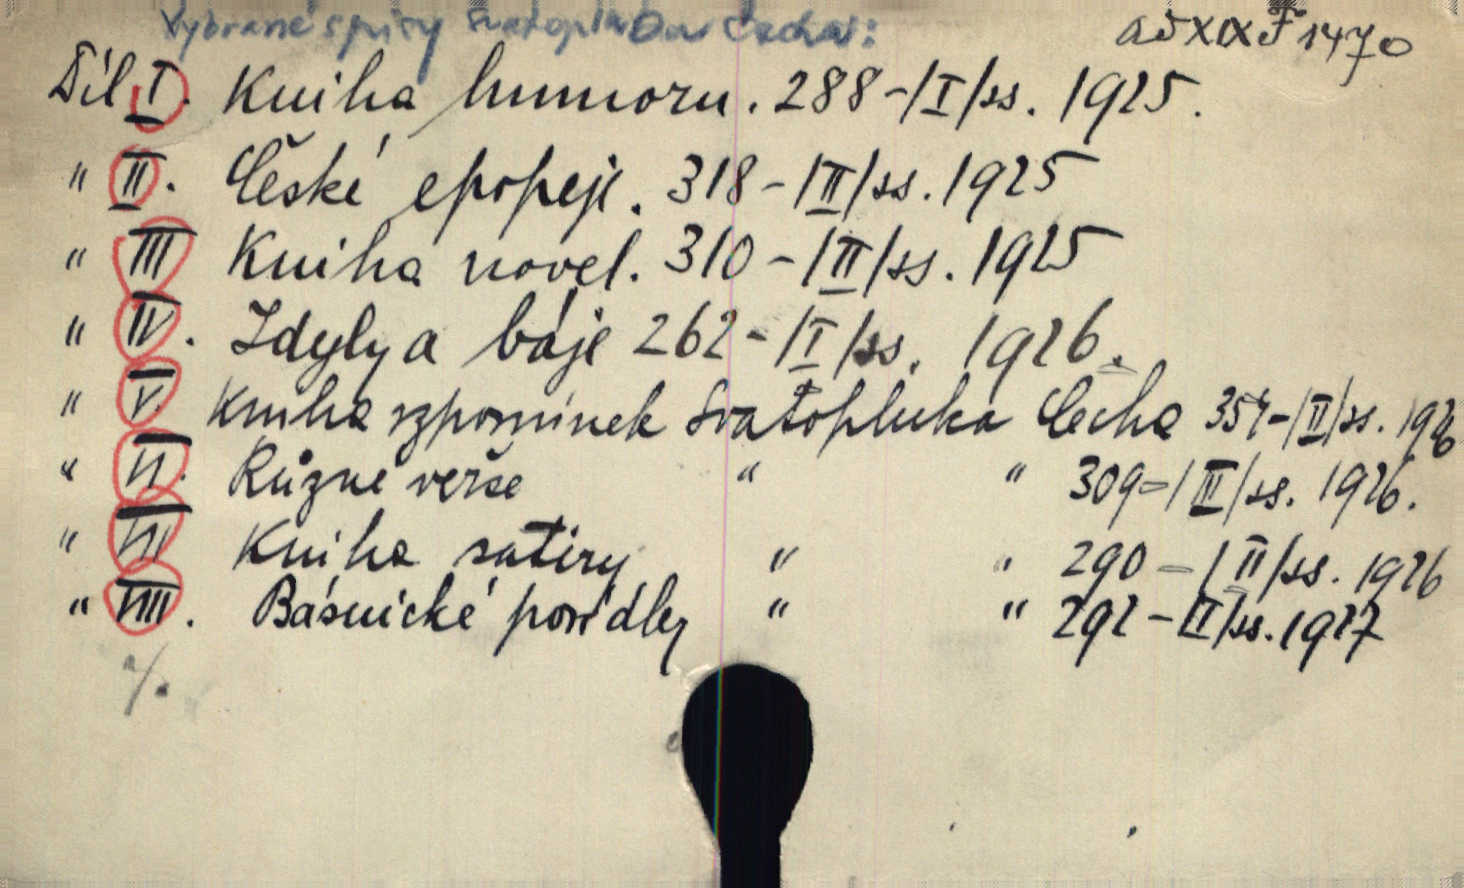 Vybrané spisy Svatopluka Čecha:
ad XIX F 1470
Díl I. Kniha humoru. 288-/I/ss. 1925.
" II. České epopeje. 318-/II/ss. 1925
" III Kniha novel. 310-/II/ss. 1925
" IV. Idyly a báje 262-/I/ss. 1926.
" V. Kniha vzpomínek Svatopluka Čecha 354-/II/ss. 1926
" VI. Různé verše " " 309-/III/ss. 1926.
" VII Kniha satiry " " 290-/II/ss. 1926
" VIII. Básnické povídky " " 292-II/ss. 1927